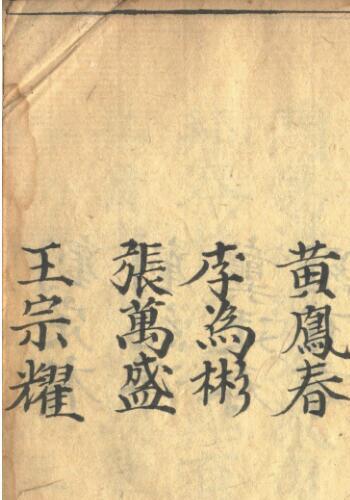 黄鳳春
李為彬
張萬盛
王宗耀